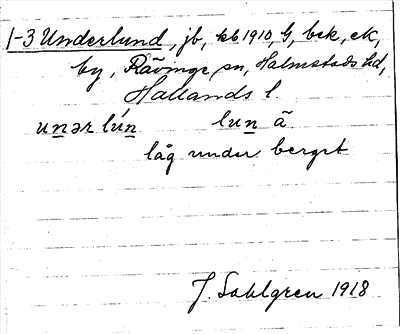 1-3 Underlund, jb, kb 1910 G, bek, ek,
by, Rävinge sn, Halmstads hd,
Hallands l.
unər lún lun ä
låg under berget
J. Sahlgren 1918